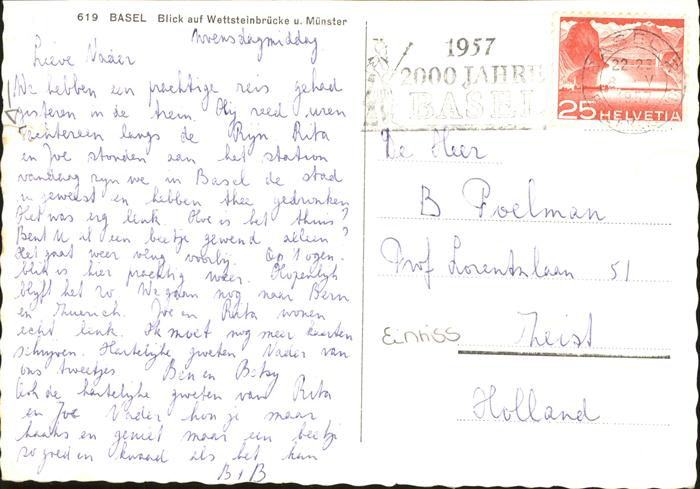 619 BASEL Blick auf Wettsteinbrücke u. Münster
Woensdagmiddag
Lieve Vader
We hebben een prachtige reis gehad
gisteren in de trein. Hij reed uren
achtereen langs de Ryn Rita
en Joe stonden aan het station
vandaag zyn we in Basel de stad
in geweest en hebben thee gedronken
Het was erg leuk. Hoe is het thuis?
Bent U al een beetje gewend alleen?
Het gaat weer vlug voorbij. Op 't ogen-
blik is hier prachtig weer. Hopenlyk
blyft het zo. We gaan nog naar Bern
en Zuerich. Joe en Rita wonen
echt leuk. Ik moet nog meer kaarten
schryven. Hartelijke groeten Vader van
ons tweetjes Ben en Betsy
Ook de hartelijke groeten van Rita
en Joe Vader hou je maar
haaks en geniet maar een beetje
zo goed en kwaad als het kan
B + B
1957
2000 JAHRE
BASEL
22-23
25 HELVETIA
De Heer
B Poelman
Prof Lorentzlaan 51
Zeist
Holland